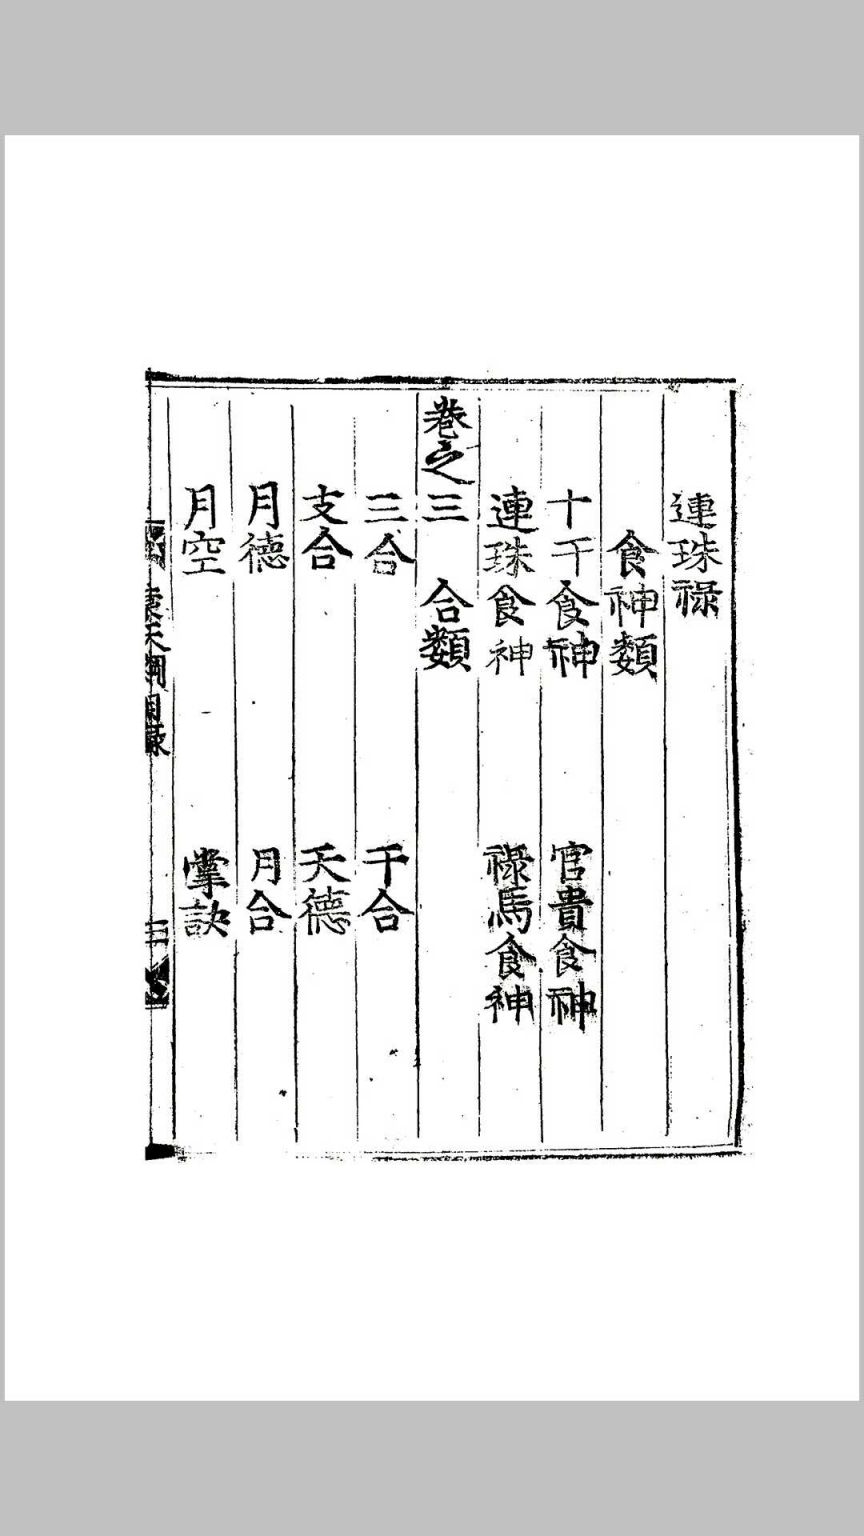 連珠祿
食神類
十干食神　官貴食神
連珠食神　祿馬食神
卷之三　合類
三合　干合
支合　天德
月德　月合
月空　掌訣
天綱目录
三